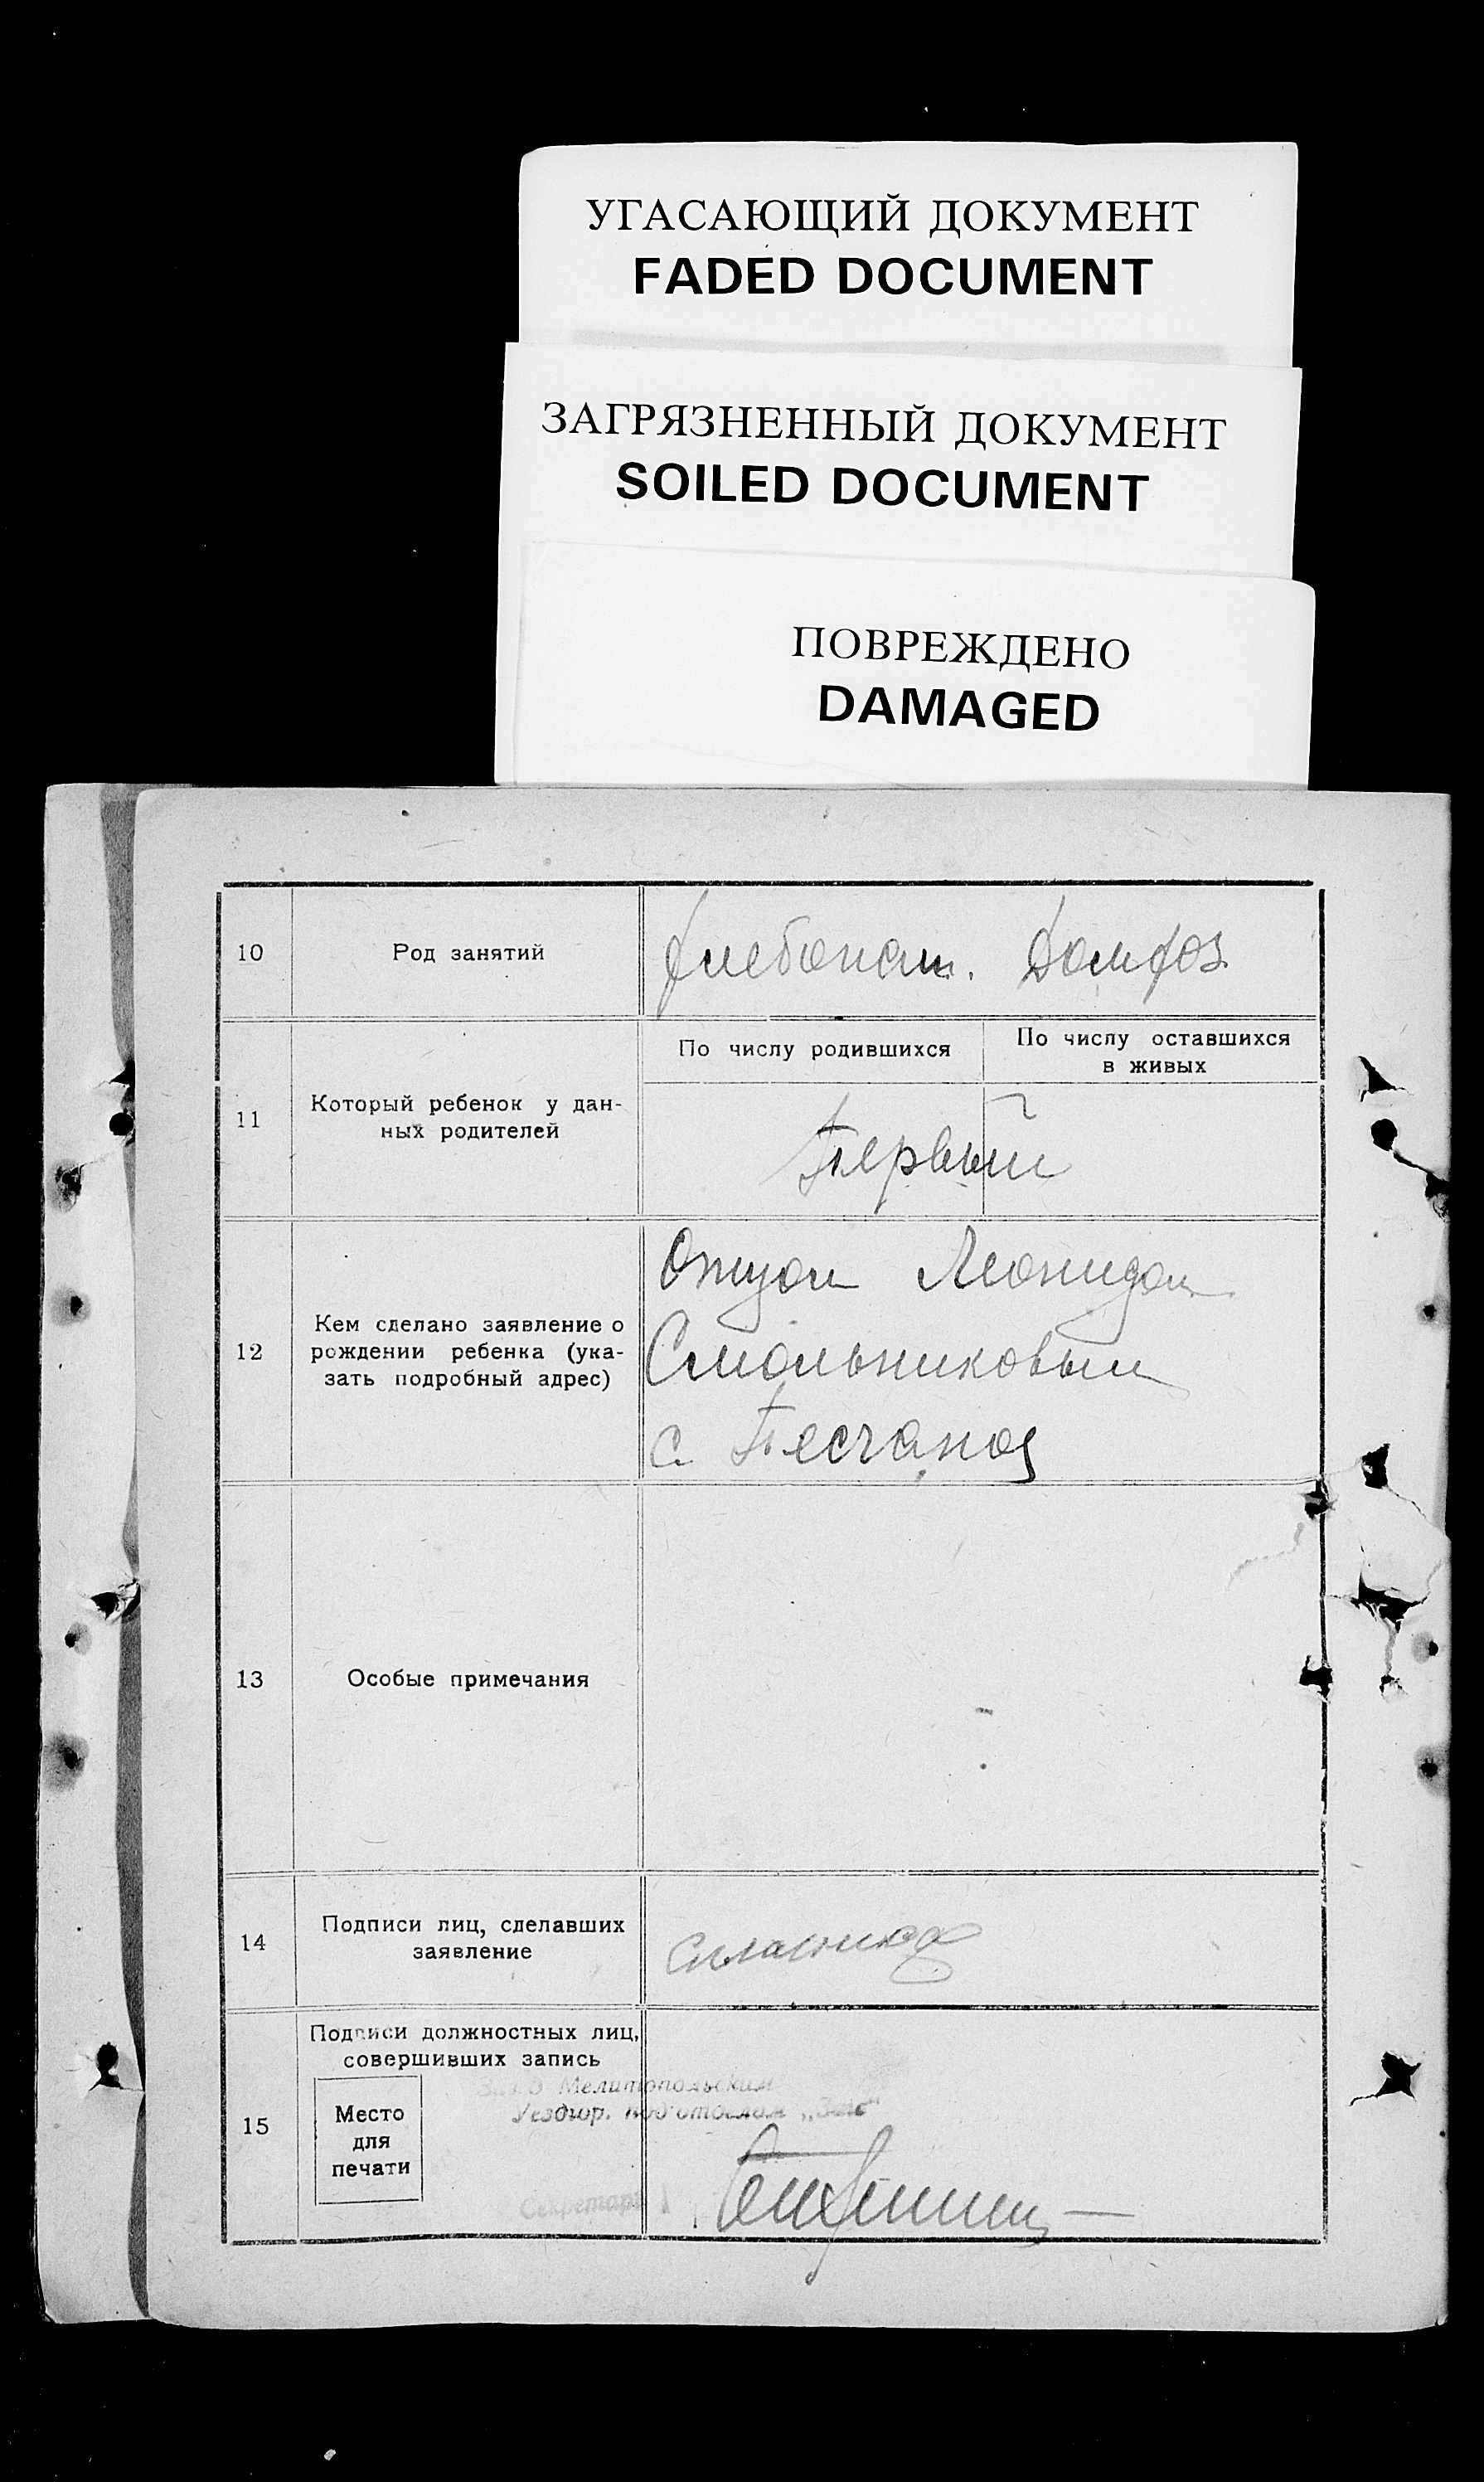 УГАСАЮЩИЙ ДОКУМЕНТ
FADED DOCUMENT
ЗАГРЯЗНЕННЫЙ ДОКУМЕНТ
SOILED DOCUMENT
ПОВРЕЖДЕНО
DAMAGED
10
Род занятий
Хлебопаш. Домхоз.
11
Который ребенок у дан-
ных родителей
По числу родившихся
По числу оставшихся
в живых
Первый
12
Кем сделано заявление о
рождении ребенка (ука-
зать подробный адрес)
Отцом Леонидом
Смольниковым
с. Песчаное
13
Особые примечания
14
Подписи лиц, сделавших
заявление
15
Подписи должностных лиц,
совершивших запись
Место
для
печати
Мелитопольским
Уездгор. под'отделом „Загс"
Секретарь